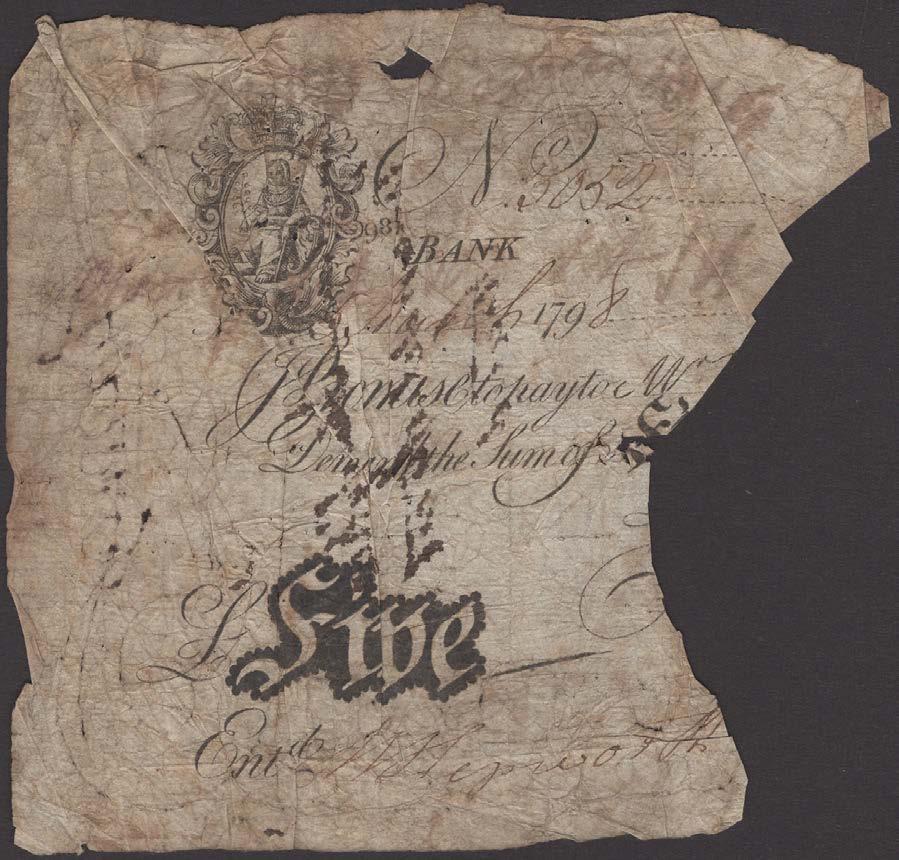 No. 3052
98
BANK
1798
I Promise to pay to Mr
Demand the Sum of
£ Five
Entd. Hepworth